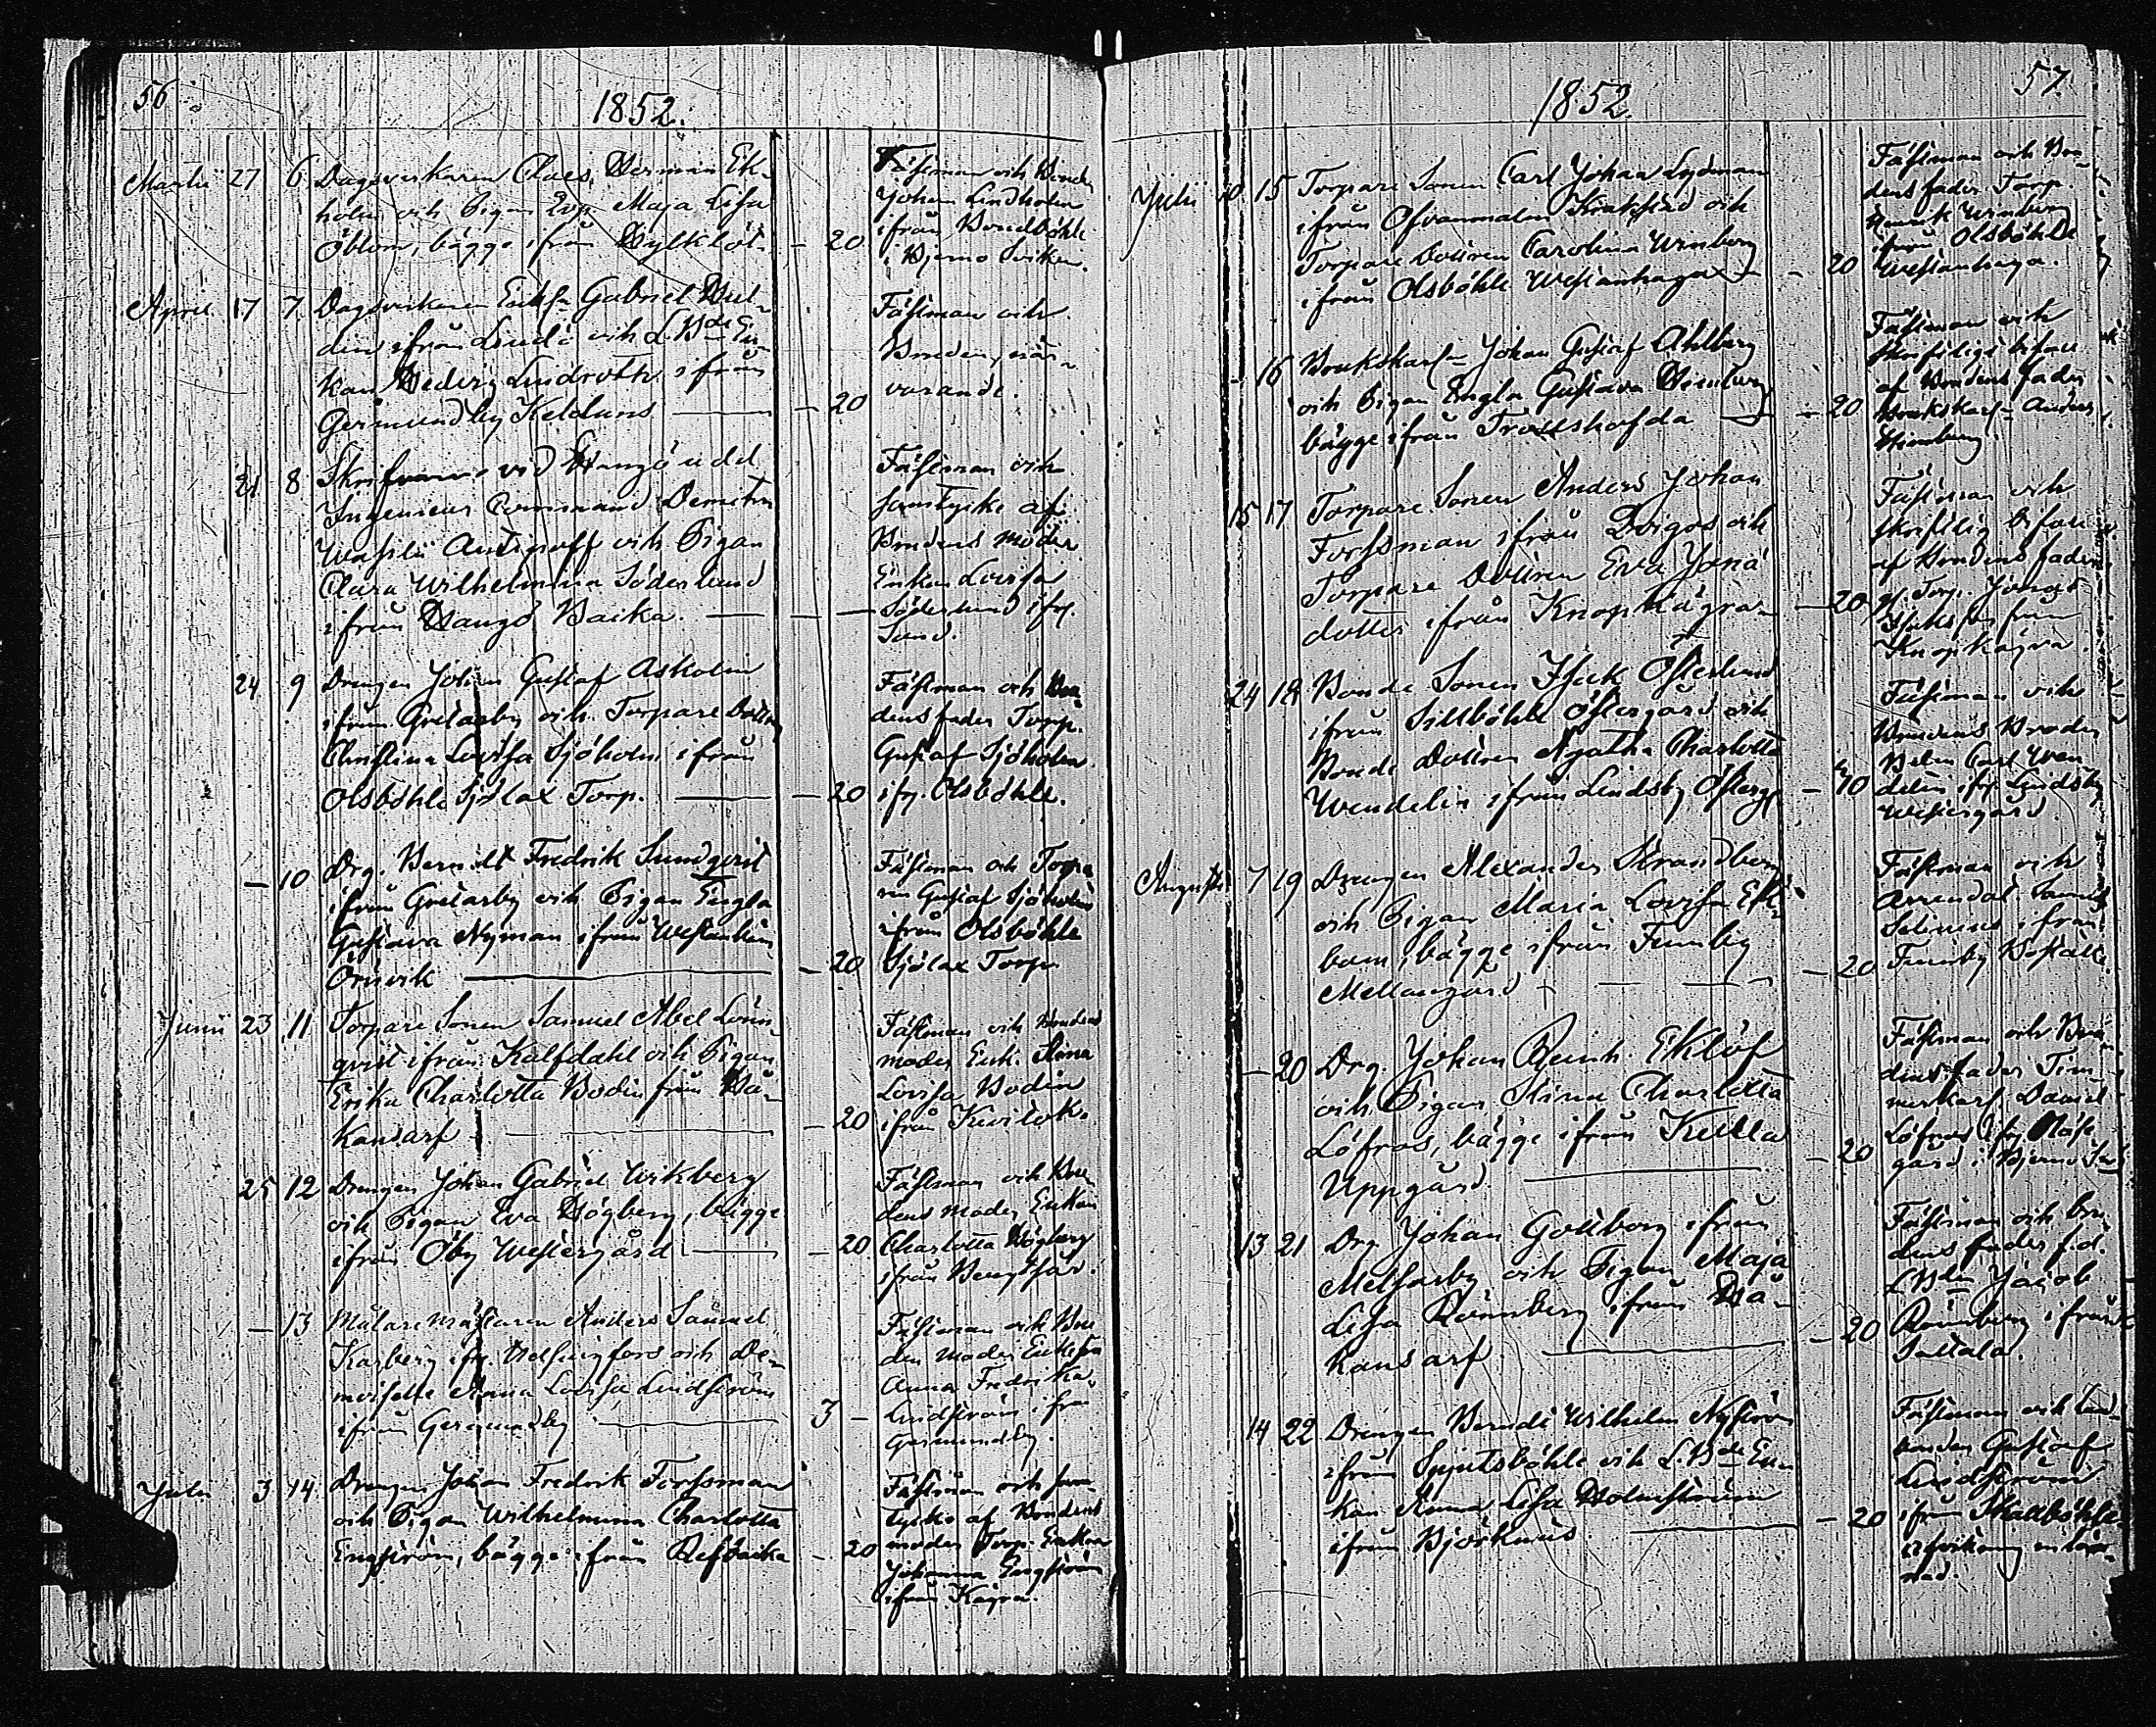 56
1852.
Martii 27 6 Dagsverkaren Claes Herman Ek-
holm och Pigan Eva Maja Lisa
Öblom, bägge ifrån - 20
Fästman och
Johan Lindholm
ifrån
i Bjerno Socken.
April 17 7 Dagsverkaren Gabriel Hul-
din ifrån Lindö och En-
kan Hedvig Lindroth ifrån
Germundby Kelduns - 20
Fästman och
Bruden, när-
varande.
21 8 vid Hangöudd
Ingenieur Command Demitri
Wasilii Antipoff och Pigan
Clara Wilhelmina Söderlund
ifrån Hangö Baika. -
Fästman och
samtycke af
Brudens moder
Enkan Lovisa
Söderlund ifr.
Sand.
24 9 Drengen Johan Gustaf Asholm
ifrån Gretarby och Torpare Dottren
Christina Lovisa Sjöholm ifrån
Olsböhle Sjölax Torp. - 20
Fästman och Bru-
dens fader Torp.
Gustaf Sjöholm
ifr. Olsböhle.
- 10 Drg. Berndt Fredrik Sundqvist
ifrån Gretarby och Pigan Engla
Gustava Nyman ifrån
Örnvik - 20
Fästman och Torpa
ren Gustaf Sjöholm
ifrån Olsböhle
Sjölax Torp
Junii 23 11 Torpare Sonen Samuel Abel Lönn-
qvist ifrån Kalfdahl och Pigan
Erika Charlotta Bodin från Hå-
kansarf - 20
Fästman och Brudens
moder Enk. Stina
Lovisa Bodin
ifrån
25 12 Drengen Johan Gabriel Wikberg
och Pigan Eva Högberg, bägge
ifrån Öby Westergård - 20
Fästman och Bru
dens moder Enkan
Charlotta Högberg
ifrån Bengtsår.
- 13 Målare Mästaren Anders Samuel
Karberg ifr. Helsingfors och De-
moiselle Anna Lovisa Lindström
ifrån Germundby 3 -
Fästman och Bru
dens moder
Anna Fredrika
Lindström ifrån
Germundby.
Julii 3 14 Drengen Johan Fredrik Forssman
och Pigan Wilhelmina Charlotta
Engström, bägge ifrån - 20
Fästman och sam-
tycke af Brudens
moder Torp. Enkan
Johanna Engström
ifrån Kägra.
57
1852.
Julii 10 15 Torpare Sonen Carl Johan Lydman
ifrån Ofvanmalm och
Torpare Dottren Carolina Winberg
ifrån Olsböhle Westanhaga - 20
Fästman och Bru-
dens fader Torp.
Winberg
ifrån Olsböhle
Westanhaga.
- 16 Brukskarl Johan Gustaf Ahlberg
och Pigan Engla Gustava
bägge ifrån Trollshofda - 20
Fästman och
skriftligt bifall
af Brudens fader
Brukskarl Anders
15 17 Torpare Sonen Anders Johan
Forssman ifrån och
Torpare Dottren Eva Jona
dotter ifrån Knopkägra - 20
Fästman och
skriftlig bifall
af Brudens fader
Torp.
från
Knopkägra.
24 18 Bonde Sonen Isak Österlund
ifrån Sillböhle Östergård och
Bonde Dottren Agatha Charlotta
Wendelin ifrån Lindsby Österg. - 40
Fästman och
Brudens Broder
Carl Wen-
delin ifr. Lindsby
Westergård.
Augusti 7 19 Drengen Alexander Strandberg
och Pigan Maria Lovisa Ek-
bom, bägge ifrån Finnby
Mellangård - 20
Fästman och
Arrendat.
Selenius ifrån
Finnby Boställe.
- 20 Drg. Johan Reinh. Eklöf
och Pigan Stina Charlotta
Löfroos, bägge ifrån Kulla
Uppgård. - 20
Fästman och Bru-
dens fader Tim-
merkarl Daniel
Löfroos ifr
gård i Bjerno
13 21 Drg Johan Gottberg ifrån
Melsarby och Pigan Maja
Lisa Rönnberg ifrån Hå-
kansarf - 20
Fästman och Bru-
dens fader f.d.
Jacob
Rönnberg ifrån
Sattala.
14 22 Drengen Berndt Wilhelm Nyström
ifrån Spjutsböhle och En-
kan Anna Lisa Holmström
ifrån Björknäs - 20
Fästman och Land-
bonden Gustaf
Lindström
ifrån Skallböhle.